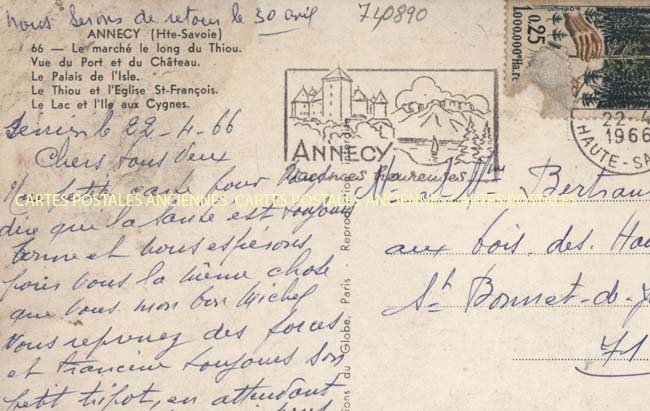 nous serons de retour le 30 avril
740890
ANNECY (Hte-Savoie)
66 — Le marché le long du Thiou.
Vue du Port et du Château.
Le Palais de l'Isle.
Le Thiou et l'Eglise St-François.
Le Lac et l'Ile aux Cygnes.
le 22-4-66
Chers tous deux
petite carte pour vous
dire que la santé est toujours
bonne et nous espérons
pour vous la même chose
que vous mon bon Michel
vous reprenez des forces
et Francine toujours son
petit tripot, en attendant
CARTES POSTALES ANCIENNES CARTES POSTALES ANCIENNES CARTES POSTALES
ANNECY
Vacances heureuses
Reproduction interdite
ions du Globe, Paris
0,25
1.000.000e Ha. re
22-4
1966
HAUTE-SA
M. et Mme Bertran
aux bois des Hau
St Bonnet-de-J
71